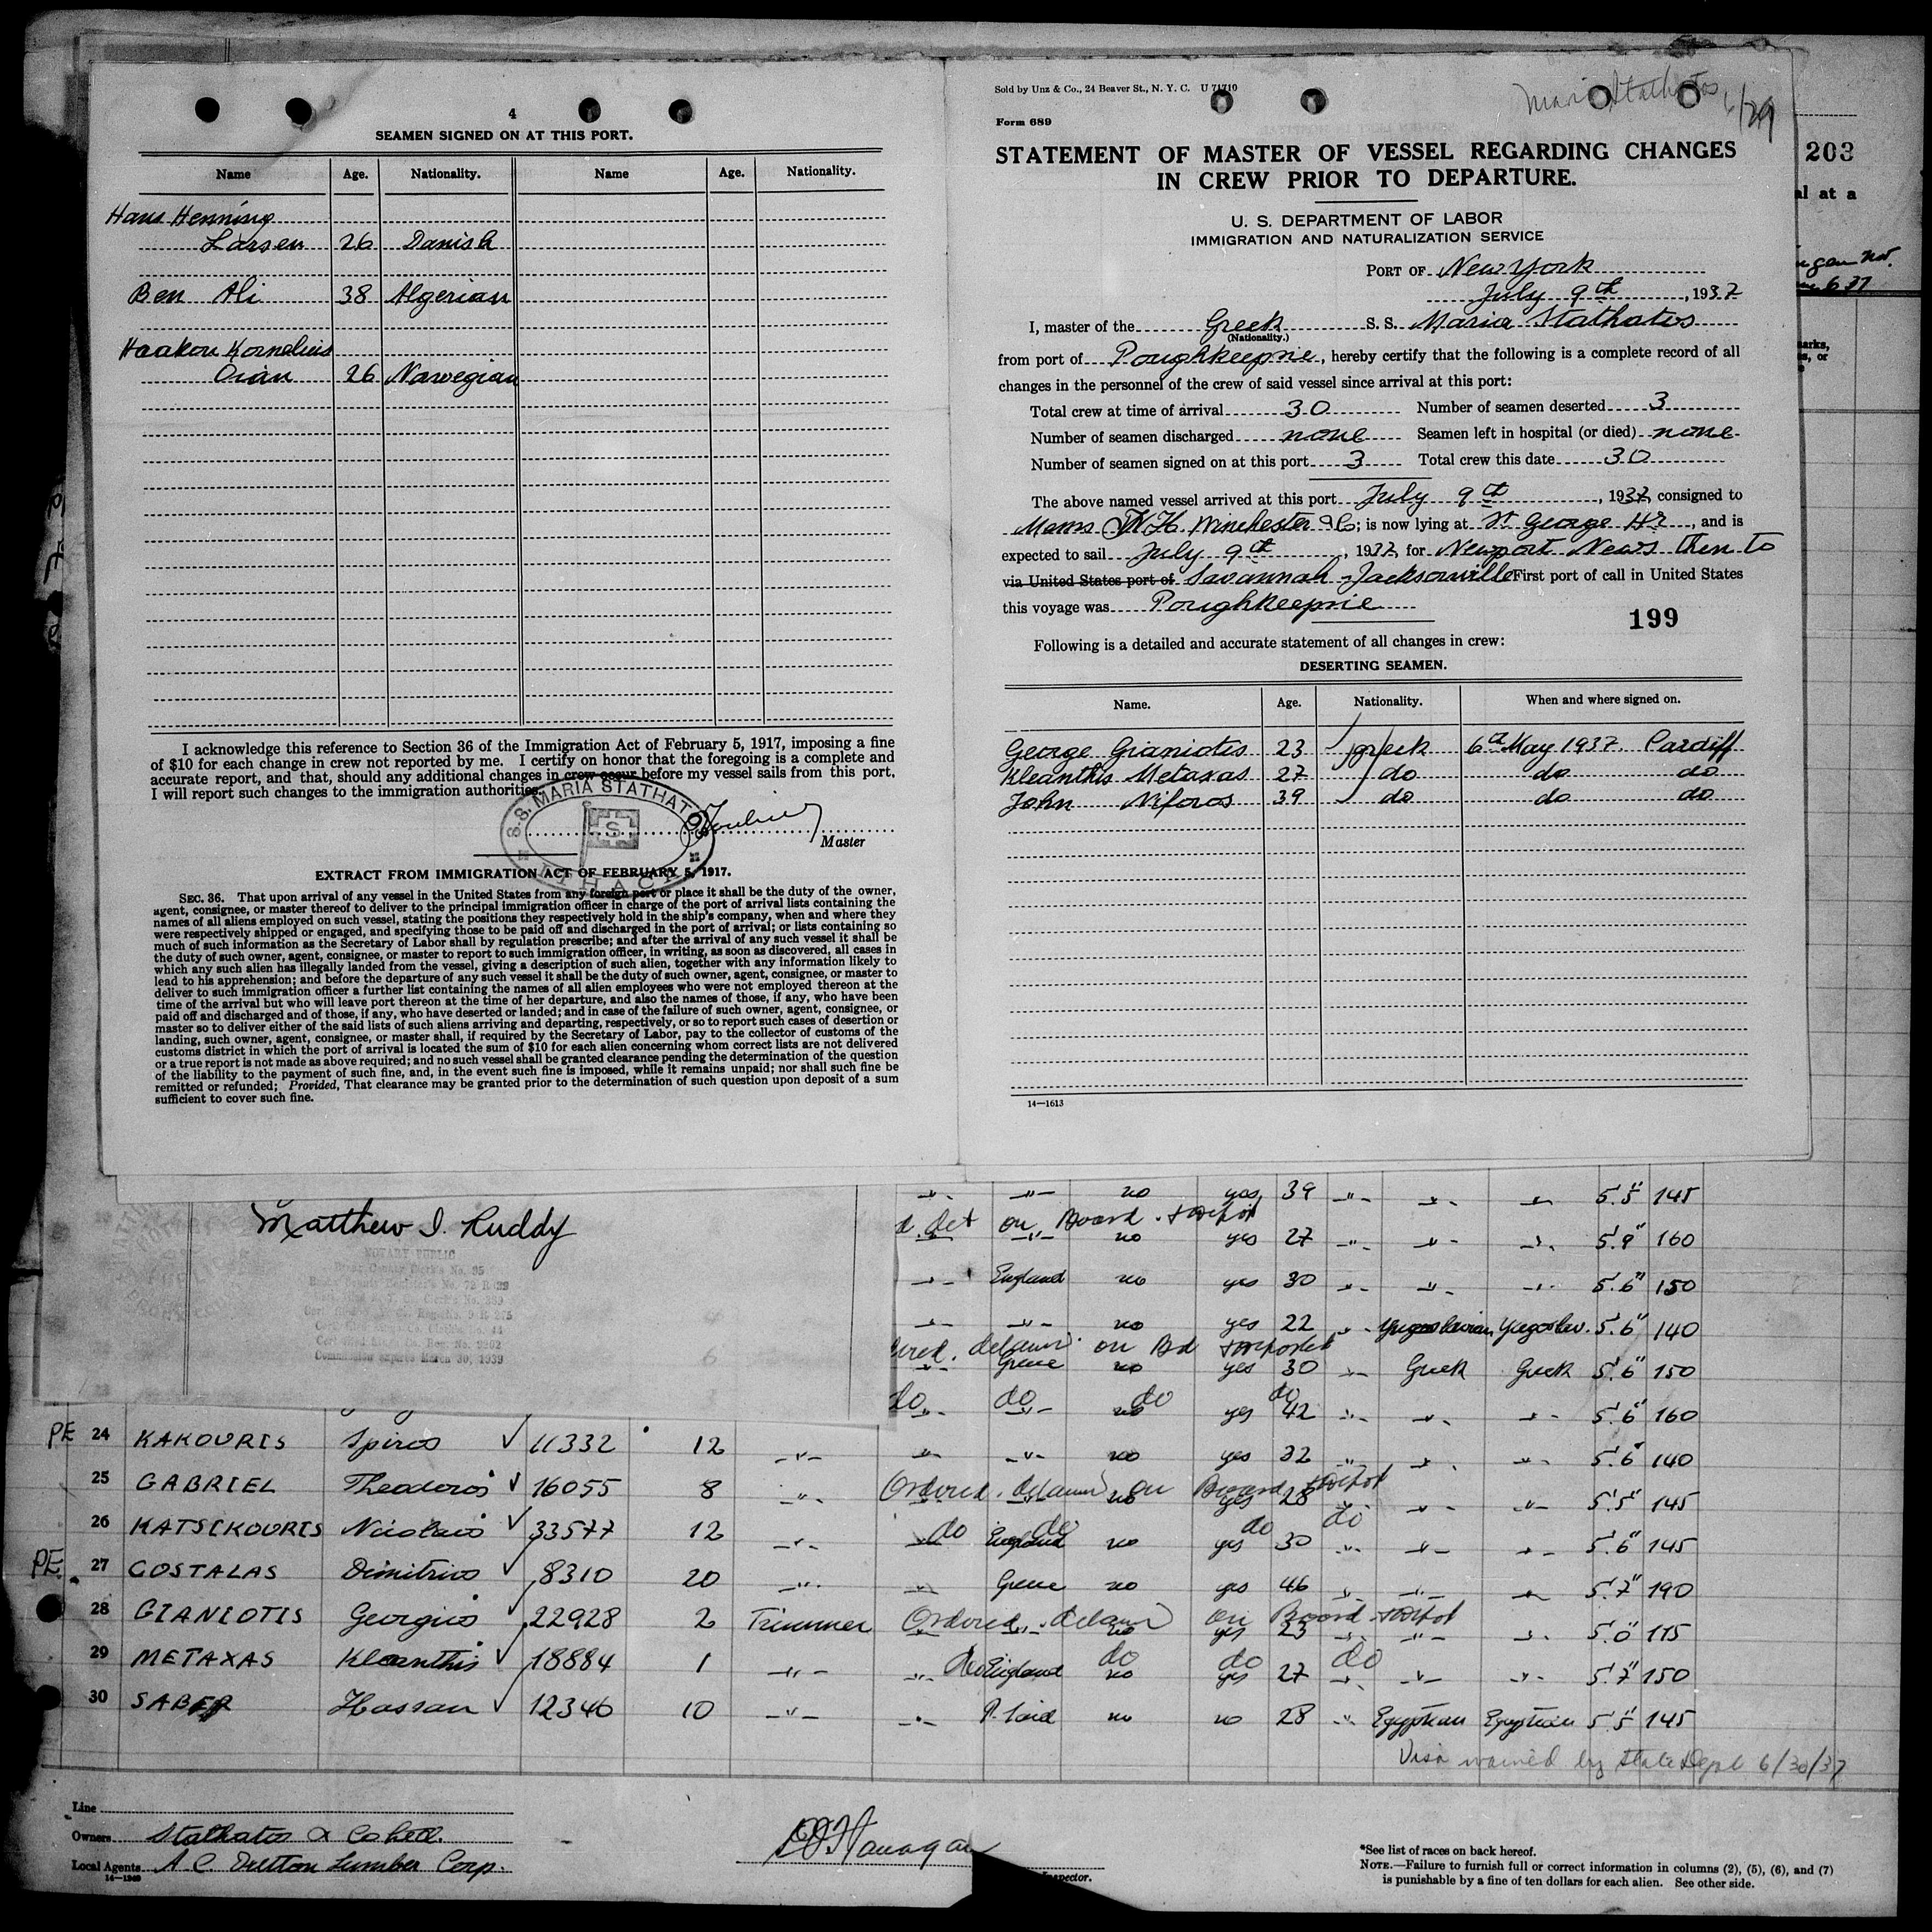 4
SEAMEN SIGNED ON AT THIS PORT.
Name Age. Nationality. Name Age. Nationality.
Hans Henning
Larsen 26 Danish
Ben Ali 38 Algerian
Haakon Kornelius
26 Norwegian
I acknowledge this reference to Section 36 of the Immigration Act of February 5, 1917, imposing a fine
of $10 for each change in crew not reported by me. I certify on honor that the foregoing is a complete and
accurate report, and that, should any additional changes in crew occur before my vessel sails from this port,
I will report such changes to the immigration authorities.
S.S. MARIA STATHATOS
S
ITHACA
Master
EXTRACT FROM IMMIGRATION ACT OF FEBRUARY 5, 1917.
SEC. 36. That upon arrival of any vessel in the United States from any foreign port or place it shall be the duty of the owner,
agent, consignee, or master thereof to deliver to the principal immigration officer in charge of the port of arrival lists containing the
names of all aliens employed on such vessel, stating the positions they respectively hold in the ship's company, when and where they
were respectively shipped or engaged, and specifying those to be paid off and discharged in the port of arrival; or lists containing so
much of such information as the Secretary of Labor shall by regulation prescribe; and after the arrival of any such vessel it shall be
the duty of such owner, agent, consignee, or master to report to such immigration officer, in writing, as soon as discovered, all cases in
which any such alien has illegally landed from the vessel, giving a description of such alien, together with any information likely to
lead to his apprehension; and before the departure of any such vessel it shall be the duty of such owner, agent, consignee, or master to
deliver to such immigration officer a further list containing the names of all alien employees who were not employed thereon at the
time of the arrival but who will leave port thereon at the time of her departure, and also the names of those, if any, who have been
paid off and discharged and of those, if any, who have deserted or landed; and in case of the failure of such owner, agent, consignee, or
master so to deliver either of the said lists of such aliens arriving and departing, respectively, or so to report such cases of desertion or
landing, such owner, agent, consignee, or master shall, if required by the Secretary of Labor, pay to the collector of customs of the
customs district in which the port of arrival is located the sum of $10 for each alien concerning whom correct lists are not delivered
or a true report is not made as above required; and no such vessel shall be granted clearance pending the determination of the question
of the liability to the payment of such fine, and, in the event such fine is imposed, while it remains unpaid; nor shall such fine be
remitted or refunded; Provided, That clearance may be granted prior to the determination of such question upon deposit of a sum
sufficient to cover such fine.
Sold by Unz & Co., 24 Beaver St., N. Y. C. U 71710
Maria Stathatos 6/29
Form 689
STATEMENT OF MASTER OF VESSEL REGARDING CHANGES
IN CREW PRIOR TO DEPARTURE.
U. S. DEPARTMENT OF LABOR
IMMIGRATION AND NATURALIZATION SERVICE
PORT OF New York
July 9th, 1937
I, master of the Greek S. S. Maria Stathatos
(Nationality.)
from port of Poughkeepsie, hereby certify that the following is a complete record of all
changes in the personnel of the crew of said vessel since arrival at this port:
Total crew at time of arrival 30 Number of seamen deserted 3
Number of seamen discharged none Seamen left in hospital (or died) none
Number of seamen signed on at this port 3 Total crew this date 30
The above named vessel arrived at this port July 9th, 1937, consigned to
Messrs Winchester & Co; is now lying at St George Hr, and is
expected to sail July 9th, 1937, for Newport News then to
via United States port of Savannah - Jacksonville First port of call in United States
this voyage was Poughkeepsie
199
Following is a detailed and accurate statement of all changes in crew:
DESERTING SEAMEN.
Name. Age. Nationality. When and where signed on.
George Gianiotis 23 Greek 6th May 1937 Cardiff
Kleanthis Metaxas 27 do do do
John Niforos 39 do do do
14—1613
203
al at a
Matthew J. Ruddy
NOTARY PUBLIC
Commission expires March 30, 1939
-"- -"- no yes 39 -"- -"- -"- 5'.5" 145
on Board
-"- -"- no yes 27 -"- -"- -"- 5'.9" 160
-"- England no yes 30 -"- -"- -"- 5'.6" 150
-"- -"- no yes 22 -"- Yugoslavian Yugoslav. 5'.6" 140
on Bd
-"- Greece no yes 30 -"- Greek Greek 5'.6" 150
do do do do
-"- -"- no yes 42 -"- -"- -"- 5'.6" 160
PE 24 KAKOURIS Spiros 11332 12 -"- -"- -"- no yes 32 -"- -"- -"- 5'.6" 140
Ordered on Board
25 GABRIEL Theodoros 16055 8 -"- -"- -"- no yes 28 -"- -"- -"- 5'.5" 145
do do do do
26 KATSIKOURIS Nicolaos 33577 12 -"- -"- England no yes 30 -"- -"- -"- 5'.6" 145
PE 27 COSTALAS Dimitrios 8310 20 -"- -"- Greece no yes 46 -"- -"- -"- 5'.7" 190
Ordered on Board
28 GIANIOTIS Georgios 22928 2 Trimmer -"- -"- no yes 23 -"- -"- -"- 5'.0" 115
do do do do
29 METAXAS Kleanthis 18884 1 -"- -"- England no yes 27 -"- -"- -"- 5'.7" 150
30 SABER Hassan 12346 10 -"- -"- P. Said no no 28 -"- Egyptian Egyptian 5'.5" 145
Visa waived by State Dept 6/30/37
Line
Owners Stathatos & Co Ltd.
Local Agents A.C. Dutton Lumber Corp.
14—1240
Inspector.
*See list of races on back hereof.
NOTE.—Failure to furnish full or correct information in columns (2), (5), (6), and (7)
is punishable by a fine of ten dollars for each alien. See other side.